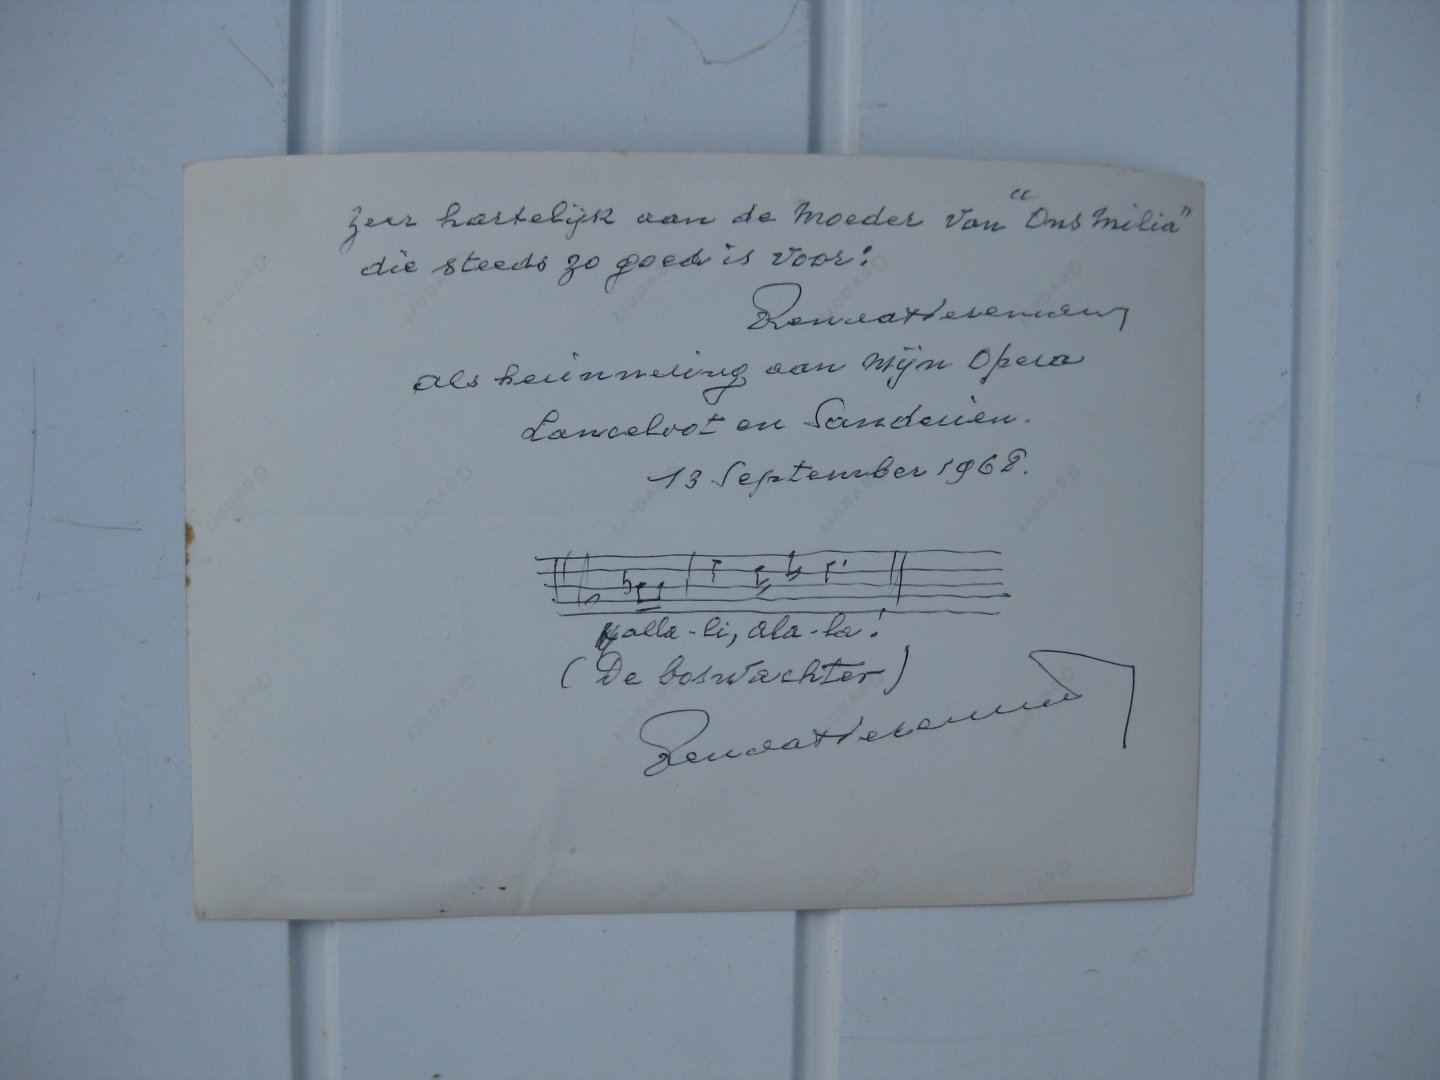 Zeer hartelijk aan de Moeder van "Ons Milia"
die steeds zo goed is voor:
Renaat Veremans
als herinnering aan mijn Opera
Lanceloot en Sanderien.
13 September 1968.
Halla-li, ala-la!
(De boswachter)
Renaat Veremans